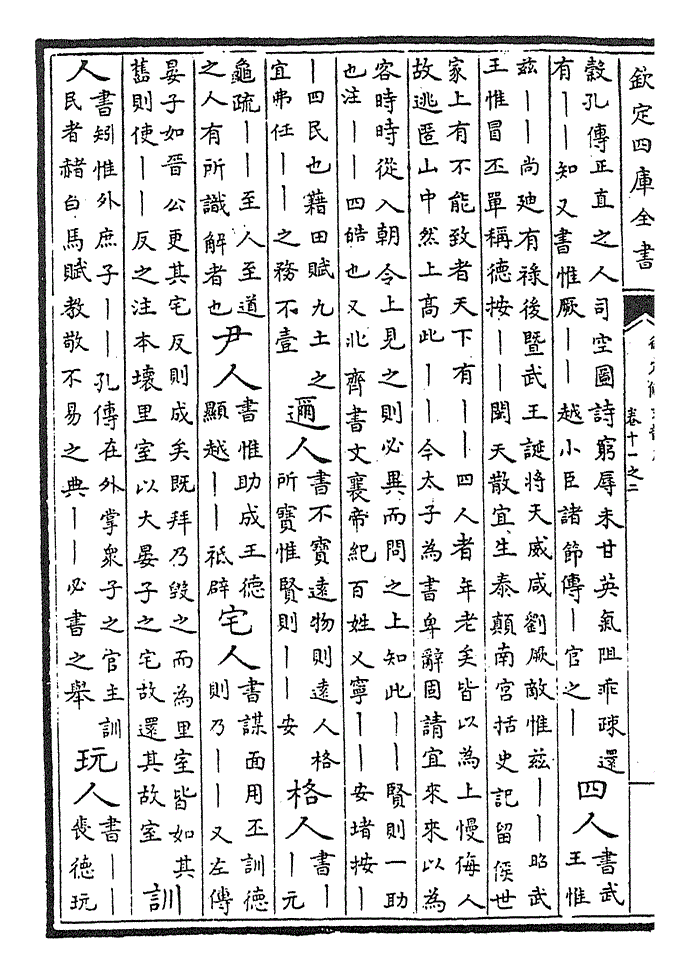 欽定四庫全書
卷十一之二
穀孔傳正直之人司空圖詩窮辱未甘英氣阻乖疎還
有丨丨知又書惟厥丨丨越小臣諸節傳丨官之丨
四人
書武
王惟
兹丨丨尚廸有祿後暨武王誕將天威咸劉厥敵惟兹丨丨昭武
王惟冒丕單稱德按丨丨閎天散宜生泰顛南宮括史記留侯世
家上有不能致者天下有丨丨四人者年老矣皆以為上慢侮人
故逃匿山中然上高此丨丨今太子為書卑辭固請宜來來以為
客時時從入朝令上見之則必異而問之上知此丨丨賢則一助
也注丨丨四皓也又北齊書文襄帝紀百姓乂寧丨丨安堵按丨
丨四民也藉田賦九土之
宜弗任丨丨之務不壹
邇人
書不寶遠物則遠人格
所寶惟賢則丨丨安
格人
書丨
丨元
龜疏丨丨至人至道
之人有所識解者也
尹人
書惟助成王德
顯越丨丨祗辟
宅人
書謀面用丕訓德
則乃丨丨又左傳
晏子如晉公更其宅反則成矣既拜乃毀之而為里室皆如其
舊則使丨丨反之注本壞里室以大晏子之宅故還其故室
訓
人
書矧惟外庶子丨丨孔傳在外掌衆子之官主訓
民者赭白馬賦教敬不易之典丨丨必書之舉
玩人
書丨丨
喪德玩